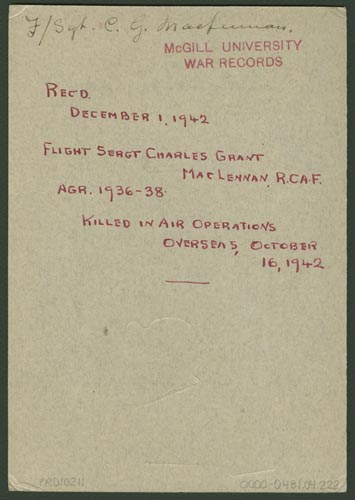 F/Sgt. C. G. MacLennan.
McGILL UNIVERSITY
WAR RECORDS
REC'D.
DECEMBER 1, 1942
FLIGHT SERGT CHARLES GRANT
MACLENNAN, R.C.A.F.
AGR. 1936-38.
KILLED IN AIR OPERATIONS
OVERSEAS, OCTOBER
16, 1942
PR010211
0000-0481.04.222